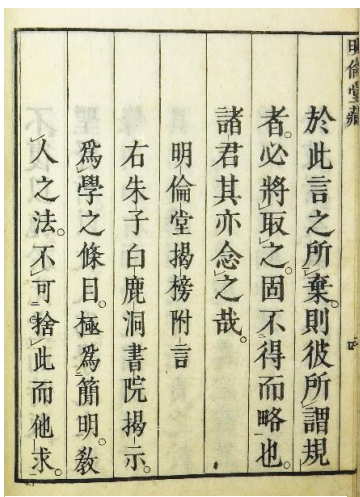 明倫堂藏
於此言之所棄。則彼所謂規
者。必將取之。固不得而略也。
諸君其亦念之哉。
明倫堂揭榜附言
右朱子白鹿洞書院揭示。
爲學之條目。極爲簡明。敎
人之法。不可捨此而他求。